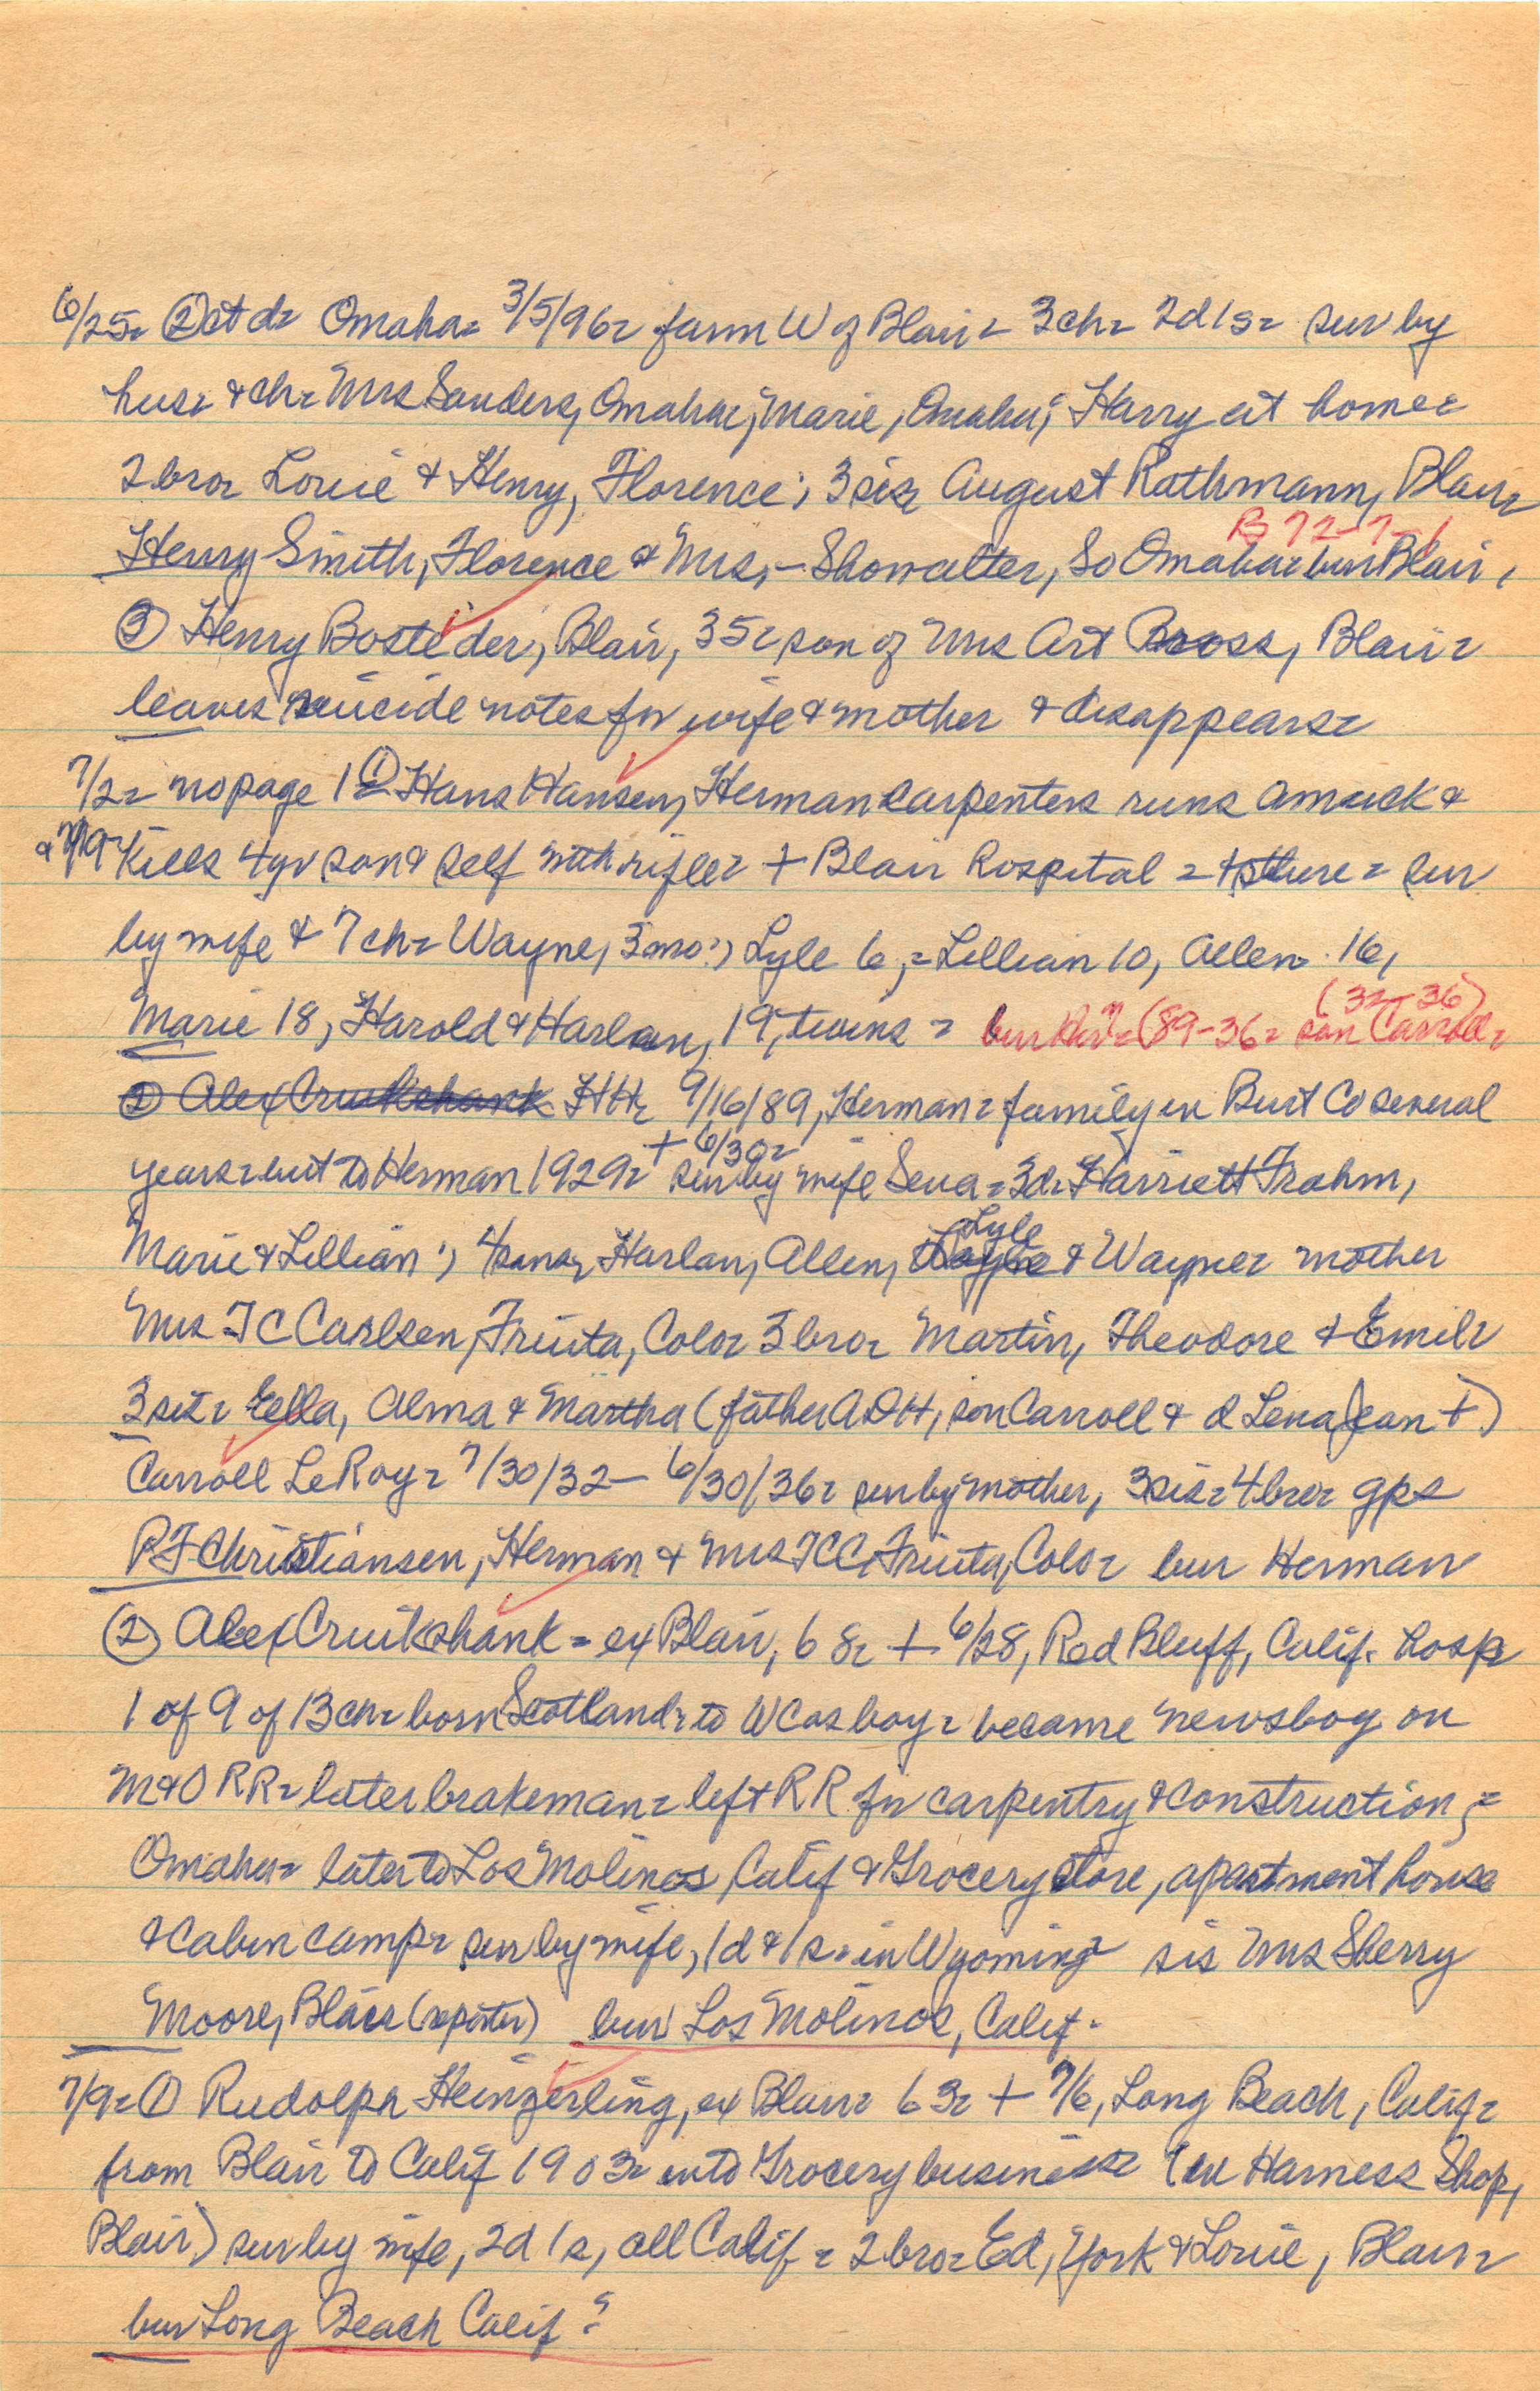 6/25= ② ct d= Omaha= 3/5/96= farm W of Blair= 3ch= 2d 1s= sur by
hus= & ch= Mrs Sanders, Omaha; Marie, Omaha; Harry at home=
2 bro= Louie & Henry, Florence; 3 sis= August Rathmann, Blair=
B 72-7-1
Henry Smith, Florence & Mrs, - Showalter, So Omaha= bur Blair,
③ Henry Bosteder, Blair, 35= son of Mrs Art Bross, Blair=
leaves suicide notes for wife & mother & disappears=
7/2= no page 1 ① Hans Hansen, Herman carpenters runs amuck &
& 7/9 kills 4 yr son & self with rifle= + Blair hospital = = sur
by wife & 7 ch= Wayne, 3 mo; Lyle 6,= Lillian 10, Allen 16,
(32-36)
Marie 18, Harold & Harlan, 19, twins = bur Her?= (89-36= son Carroll=
② Alex Cruikshank HH= 9/16/89, Herman= family in Burt Co several
+ 6/30=
years= but to Herman 1929= sur by wife Sena= 3d= Harriett Frahm,
Lyle
Marie & Lillian; 4 sons, Harlan, Allen, & Wayne= mother
Mrs T C Carlsen, Fruita, Colo= 3 bro= Martin, Theodore & Emil=
3 sis= Ella, Alma & Martha (father ADH, son Carroll & d Lena Jean +)
Carroll LeRoy= 7/30/32- 6/30/36= sur by mother, 3 sis= 4 bro= gps
P F Christiansen, Herman & Mrs TCC, Fruita, Colo= bur Herman
② Alex Cruikshank = ex Blair, 68= + 6/28, Red Bluff, Calif. hosp
1 of 9 of 13 ch= born Scotland= to WC as boy= became newsboy on
M&O RR= later brakeman= left RR for carpentry & construction=
Omaha= later to Los Molinos, Calif & Grocery store, apartment house
& cabin camp= sur by wife, 1d & 1s= in Wyoming= sis Mrs Sherry
Moore, Blair (reporter) bur Los Molinos, Calif.
7/9= ① Rudolph Heinzerling, ex Blair= 63= + 7/6, Long Beach, Calif=
from Blair to Calif 1903= into Grocery business= (ex Harness Shop,
Blair) sur by wife, 2d 1s, all Calif = 2 bro= Ed, York & Louie, Blair=
bur Long Beach Calif?